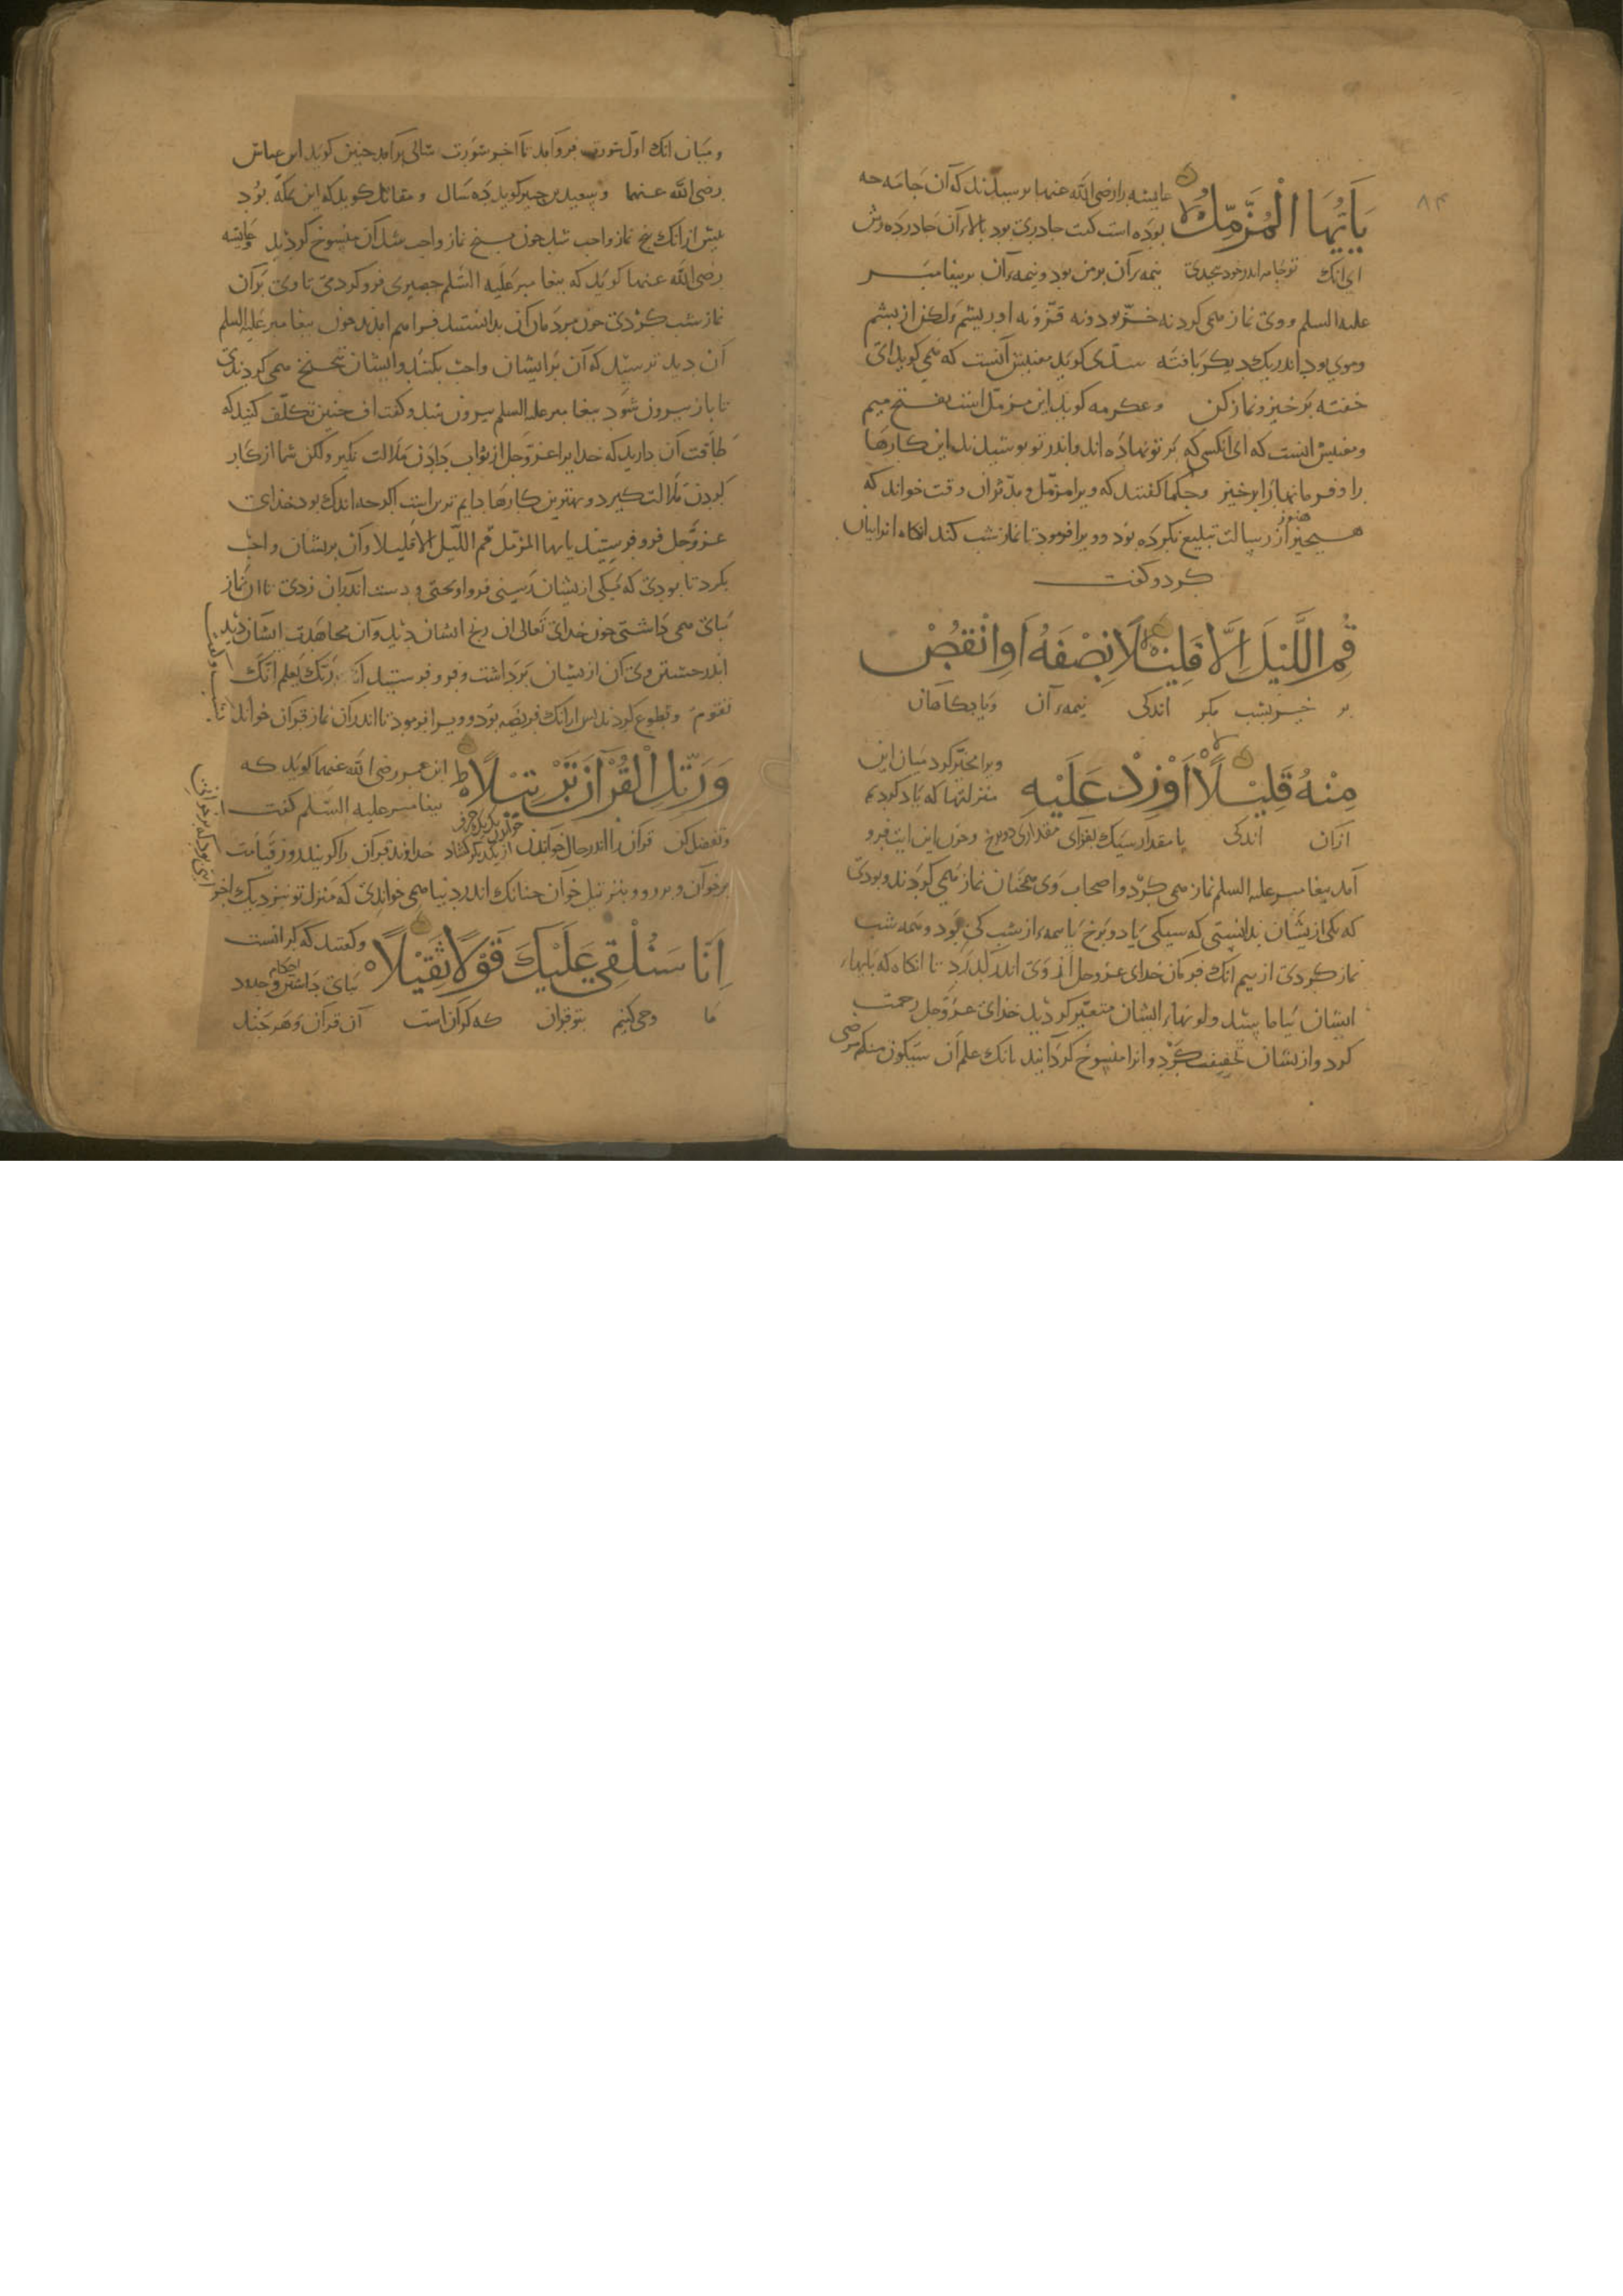 ۸۴
يَاَيُّهَا الْمُزَّمِّلُ عایشه را رضی الله عنها برسیدند که آن جامه جه
بوذه است کفت جادری بود بالاء آن جادرده رش
ای انک تو جامه اندر خود نیمهء آن بر من بود و نیمهء آن بر بیغامبر
علیه السلم و وی نماز همی کرد نه خزّ بود و نه قزّ و نه ابریشم ولکن از بشم
و موی بود اندر یک دیکر بافته سدّی کوید معنیش آنست که همی کوید ای
خفته برخیز و نماز کن و عکرمه کوید این مزمّل است بفتح میم
و معنیش انست که ای انکسی که بر تو نهاده اند و اندر تو بوشیدند این کارها
را و فرمانها را برخیز و حکما کفتند که ویرا مزمّل و مدّثر ان وقت خواند که
هیچیز هنوز از رسالت تبلیغ نکرده بود و ویرا فرمود تا نماز شب کند انکاه
کرد و کفت
قُمِ اللَّيْلَ اِلَّا قَلِيْلًا نِصْفَهُ اَوِ انْقُصْ
بر خیز بشب مکر اندکی نیمهء آن و یا بکاهان
مِنْهُ قَلِيْلًا اَوْ زِدْ عَلَيْهِ ویرا مخیّر کرد میان این
منزلتها که یاد کردیم
ازان اندکی یا مقدار سیک بفزای مقداری دو برخ و جون این ایت فرو
آمد بیغامبر علیه السلم نماز همی کرد و اصحاب وی همجنان نماز همی کردند و بودی
که یکی ازیشان ندانستی که سیکی یا دو برخ یا نیمهء از شب کی بود و همه شب
نماز کردی از بیم انک فرمان خدای عز و جل از وی اندر کذرد تا انکاه که بایهاء
ایشان بیاماسید و لونهاء ایشان متغیّر کردید خدای عزّ و جل رحمت
کرد و ازیشان تخفیف کرد و انرا منسوخ کردانید بانک علم اَن سَیَکون منکم مرضی
و میان انک اول سورت فرو آمد تا آخر سورت سالی برآمد جنین کوید ابن عباس
رضی الله عنهما و سعید بن جبیر کوید ده سال و مقاتل کوید که این بمکه بود
بیش از انک بنج نماز واجب شد جون بنج نماز واجب شد آن منسوخ کردید و عایشه
رضی الله عنها کوید که بیغامبر علیه السلم حصیری فرو کردمی تا وی بر آن
نماز شب کردی جون مردمان آن بدانستند فراهم امدند جون بیغامبر علیه السلم
آن دید ترسید که آن بر ایشان واجب بکنند و ایشان تنحنح همی کردندی
تا باز بیرون شود بیغامبر علیه السلم بیرون شد و کفت جنین تکلّف کنید که
طاقت آن دارید که خدایرا عزّ و جل از ثواب دادن ملالت نکیرد ولکن شما از کار
کردن ملالت کیرد و بهترین کارها دایم تریر است اکرجه اندک بود خدای
عزّ و جل فرو فرستید یایها المزمّل قم اللّیل الا قلیلا و آن بریشان واجب
بکرد تا بودی که یکی ازیشان رسنی فرو اویختی و دست اندران زدی تا از نماز
ببای همی داشتی جون خدای تعالی ان رنج ایشان دید و آن مجاهدت ایشان دید
اندر جستن وی آن ازیشان برداشت و فرو فرستید ان رَبّک یعلم انّک
تقوم و تطوع کردند بس ازانک فریضه بود و ویرا فرمود تا اندران نماز قرآن خواند
وَرَتِّلِ الْقُرْآنَ تَرْتِيْلًا ابن عمر رضی الله عنهما کوید که
بیغامبر علیه السّلم کفت
و تفصل کن قرآن را اندر حال خواندن از یکدیکر کشاد خداوند قرآن را کویند روز قیامت
برخوان و بر رو و بترتیل خوان جنانک اندر دنیا همی خواندی که منزل تو بنزدیک آخر
اِنَّا سَنُلْقِي عَلَيْكَ قَوْلًا ثَقِيْلًا و کفتند که کرانست
ببای داشتن احکام و حدود
ما وحی کنیم بتو قرآن که کران است آن قرآن و هرجند